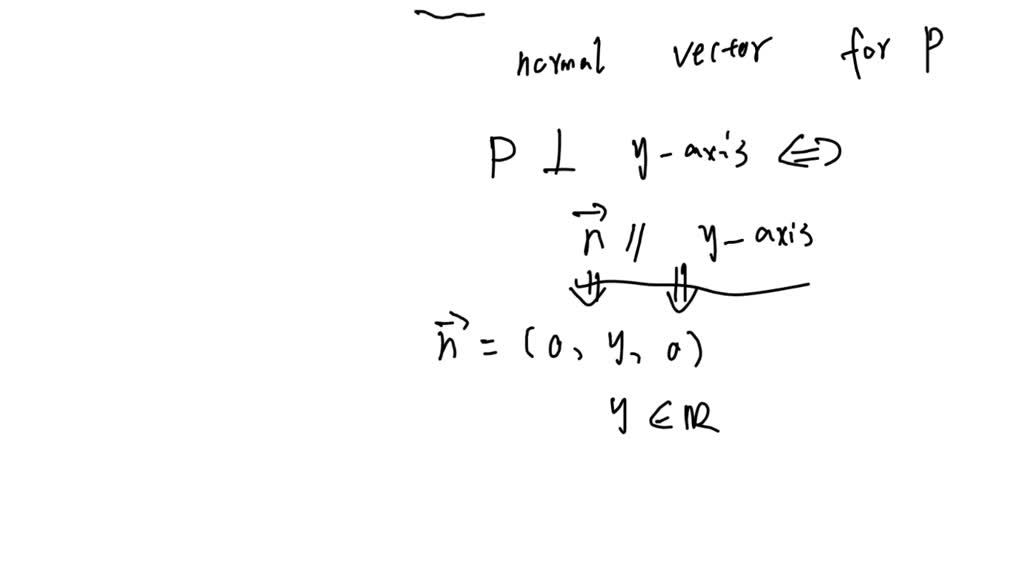 normal vector for P
P ⊥ y-axis ⇔
n⃗ // y-axis
n⃗ = (0, y, 0)
y ∈ ℝ